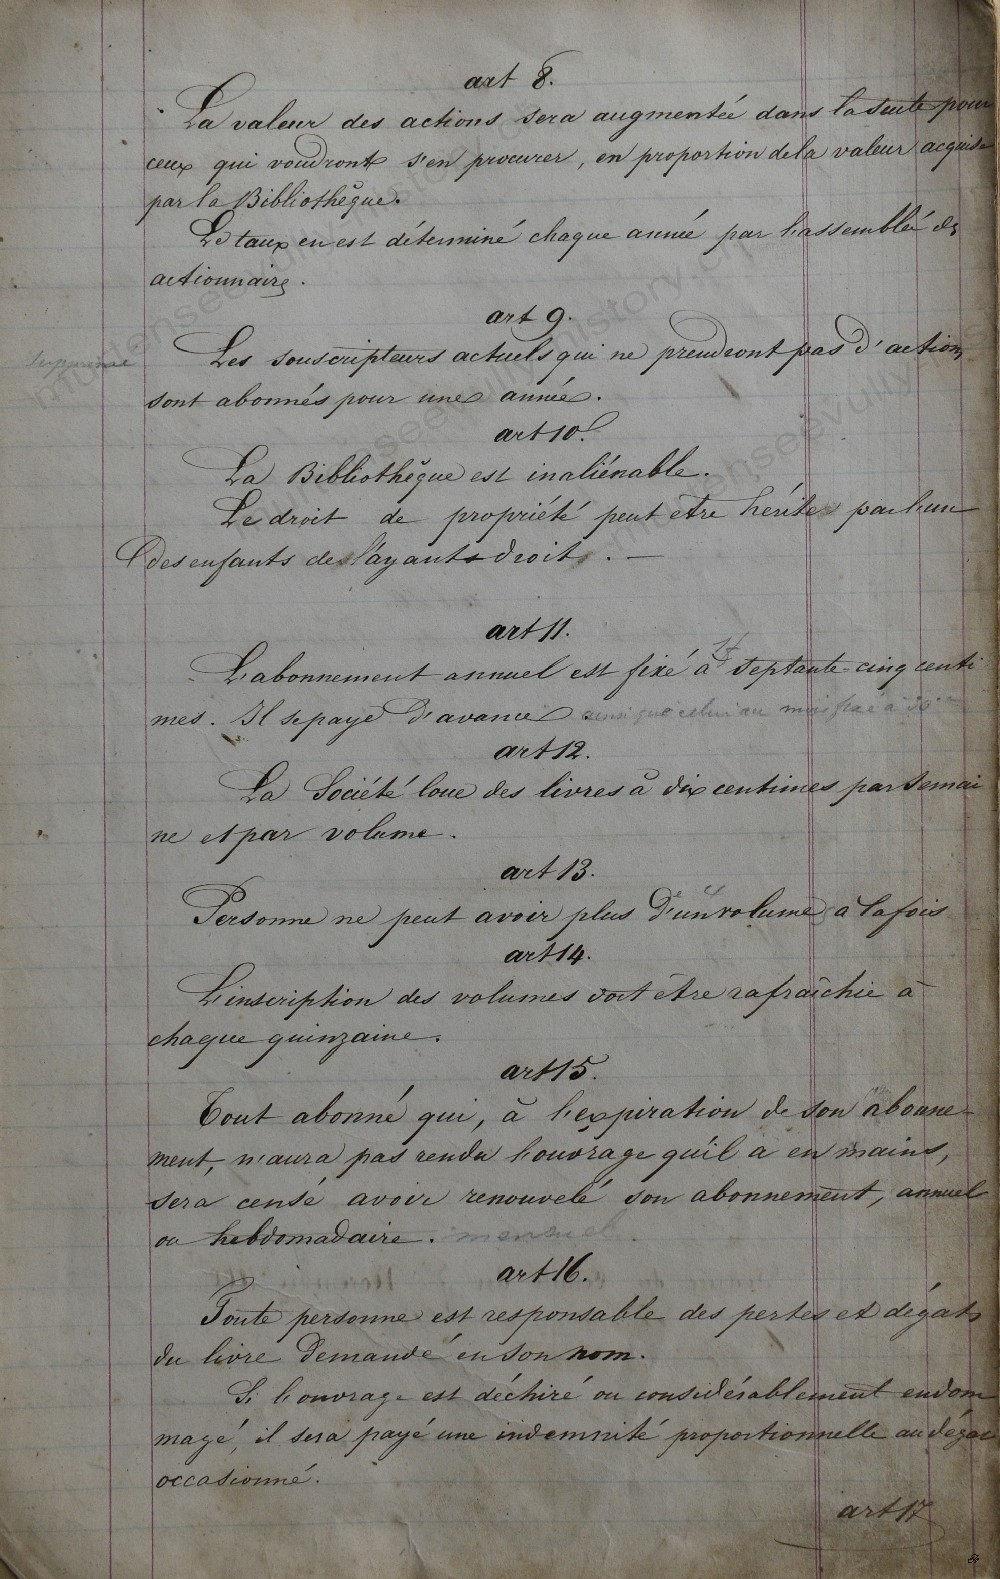 art 8.
La valeur des actions sera augmentée dans la suite pour
ceux qui voudront s'en procurer, en proportion de la valeur acquise
par la Bibliothèque.
Le taux en est déterminé chaque année par l'assemblée des
actionnaires.
art 9.
supprimé
Les souscripteurs actuels qui ne prendront pas d'action
sont abonnés pour une année.
art 10.
La Bibliothèque est inaliénable.
Le droit de propriété peut être hérité par l'un
des enfants de l'ayant droit. —
art 11.
L'abonnement annuel est fixé à septante-cinq centi
mes. Il se paye d'avance ainsi que celui au mois fixé à
art 12.
La Société loue des livres à dix centimes par semai
ne et par volume.
art 13.
Personne ne peut avoir plus d'un volume à la fois
art 14.
L'inscription des volumes doit être rafraîchie à
chaque quinzaine.
art 15.
Tout abonné qui, à l'expiration de son abonne-
ment, n'aura pas rendu l'ouvrage qu'il a en mains,
sera censé avoir renouvelé son abonnement, annuel
ou hebdomadaire. mensuel.
art 16.
Toute personne est responsable des pertes et dégats
du livre demandé en son nom.
Si l'ouvrage est déchiré ou considérablement endom
magé, il sera payé une indemnité proportionnelle au dégat
occasionné.
art 17